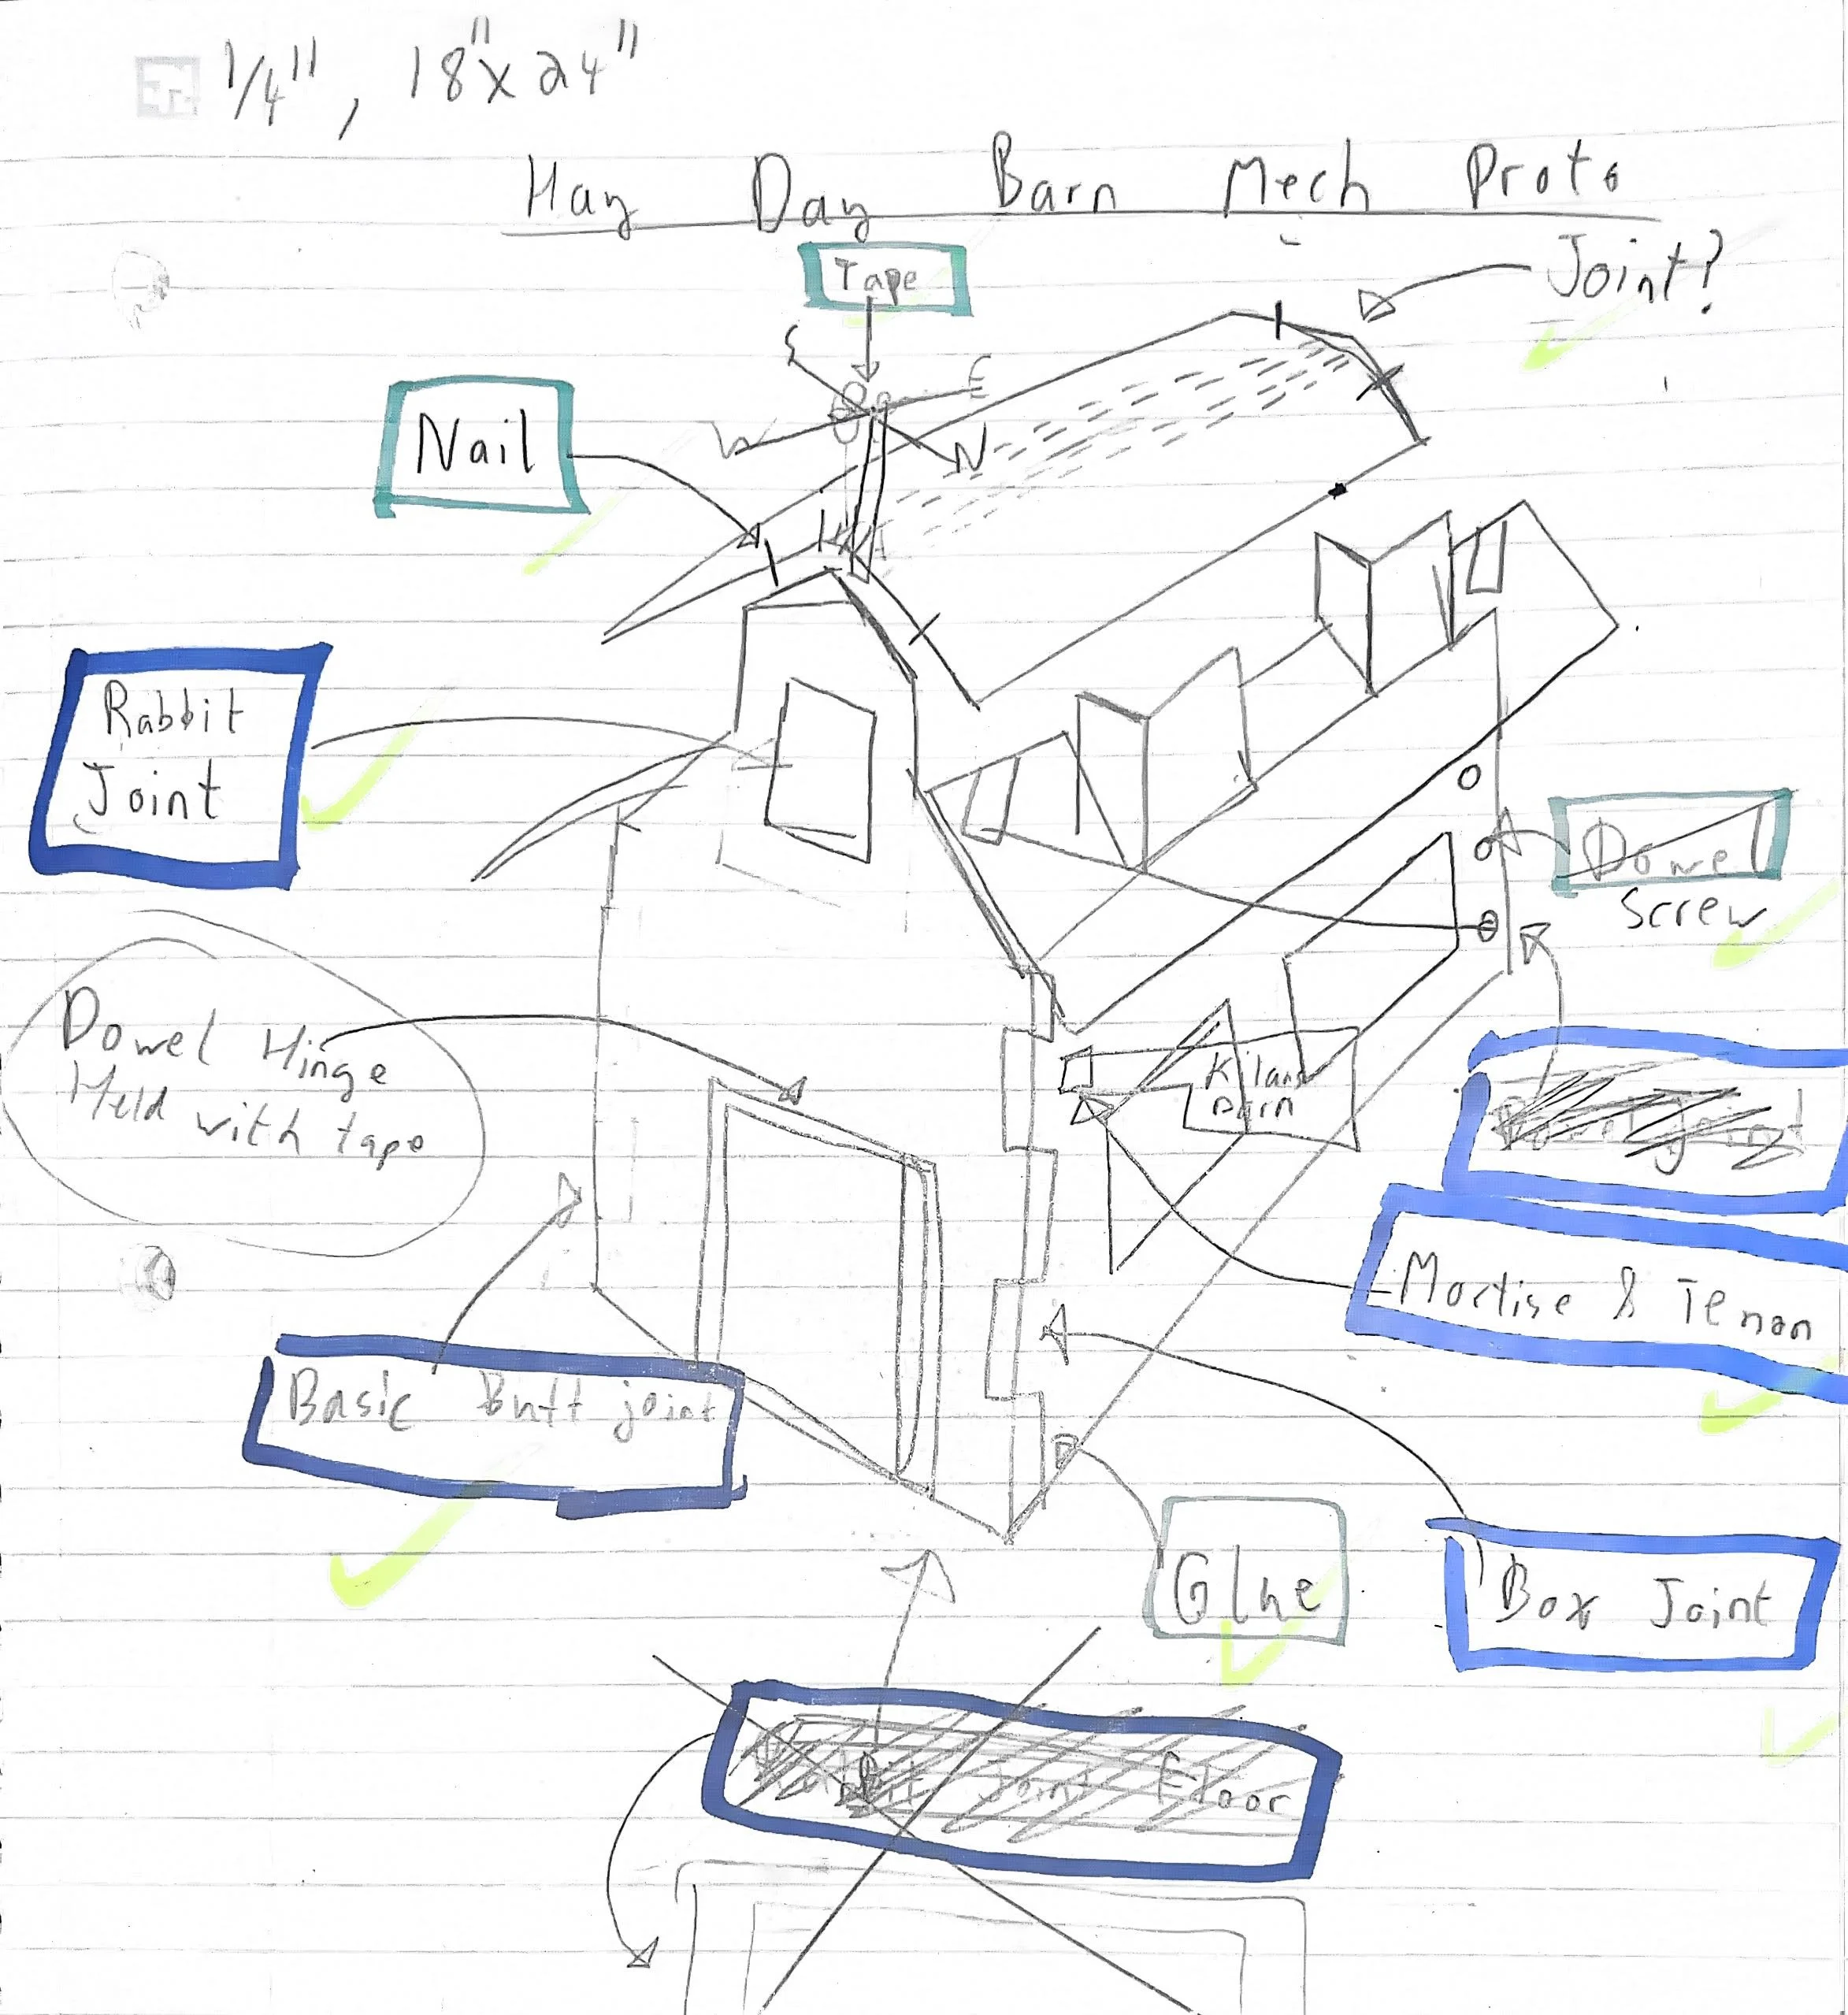 1/4", 18"x24"
Hay Day Barn Mech Proto
Joint?
Tape
S
E
W
N
Nail
Rabbit
Joint
Dowel
Screw
Dowel Hinge
Held with tape
Barn
Joint
Mortise & Tenon
Basic Butt joint
Glue
Box Joint
Joint Floor